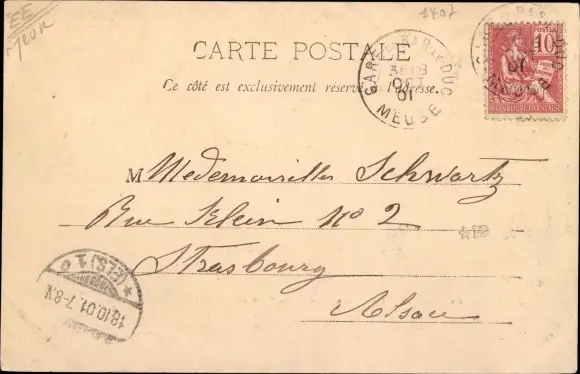 EE
1407
CARTE POSTALE
Ce côté est exclusivement réservé à l'adresse.
GARE DE BAR LE DUC
OCT
01
MEUSE
POSTES
10
REPUBLIQUE FRANCAISE
M Medemoiselles Schwartz
Rue Klein No 2
Strasbourg
Alsace
(ELS) 1
18.10.01.7-8.V.